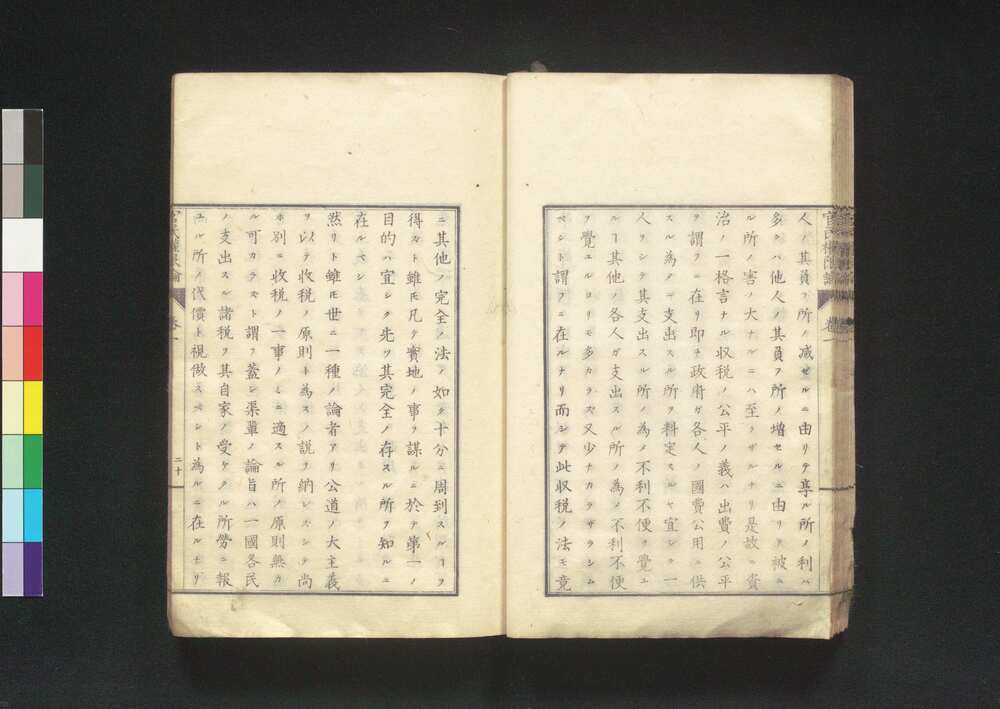 人ノ其負フ所ノ減ゼルニ由リテ享ル所ノ利ハ
多クハ他人ノ其負フ所ノ増セルニ由リテ被ニ
ル所ノ害ノ大ナルニハ至ラザルナリ是故ニ資
治ノ一格言ナル収税ノ公平ノ義ハ出費ノ公平
ヲ謂フニ在リ即チ政府ガ各人ノ國費公用ニ供
スル為メニ支出スル所ヲ料定スルヤ宜シク一
人ヲシテ其支出スル所ノ為メ不利不便ヲ覺ユ
ルヿ其他ノ各人ガ支出スル所ノ為メ不利不便
ヲ覺ユルヨリモ多カラズ又少ナカラザラシム
ベシト謂フニ在ルナリ而シテ此収税ノ法モ竟
ニ其他ノ完全ノ法ノ如ク十分ニ周到スルヿヲ
得ズト雖モ凡テ實地ノ事ヲ謀ルニ於テ第一ノ
目的ハ宜シク先ツ其完全ノ存スル所ヲ知ルニ
在ルベシ
然リト雖モ世ニ一種ノ論者アリ公道ノ大主義
ヲ以テ收税ノ原則ト為スノ説ヲ納レズシテ尚
ホ別ニ收税ノ一事ノミニ適スル所ノ原則無カ
ル可カラズト謂フ蓋シ渠輩ノ論旨ハ一國各民
ノ支出スル諸税ヲ其自家ノ受ケタル所勞ニ報
ユル所ノ代價ト視做スベシト為ルニ在ルモリ
卷一
二十